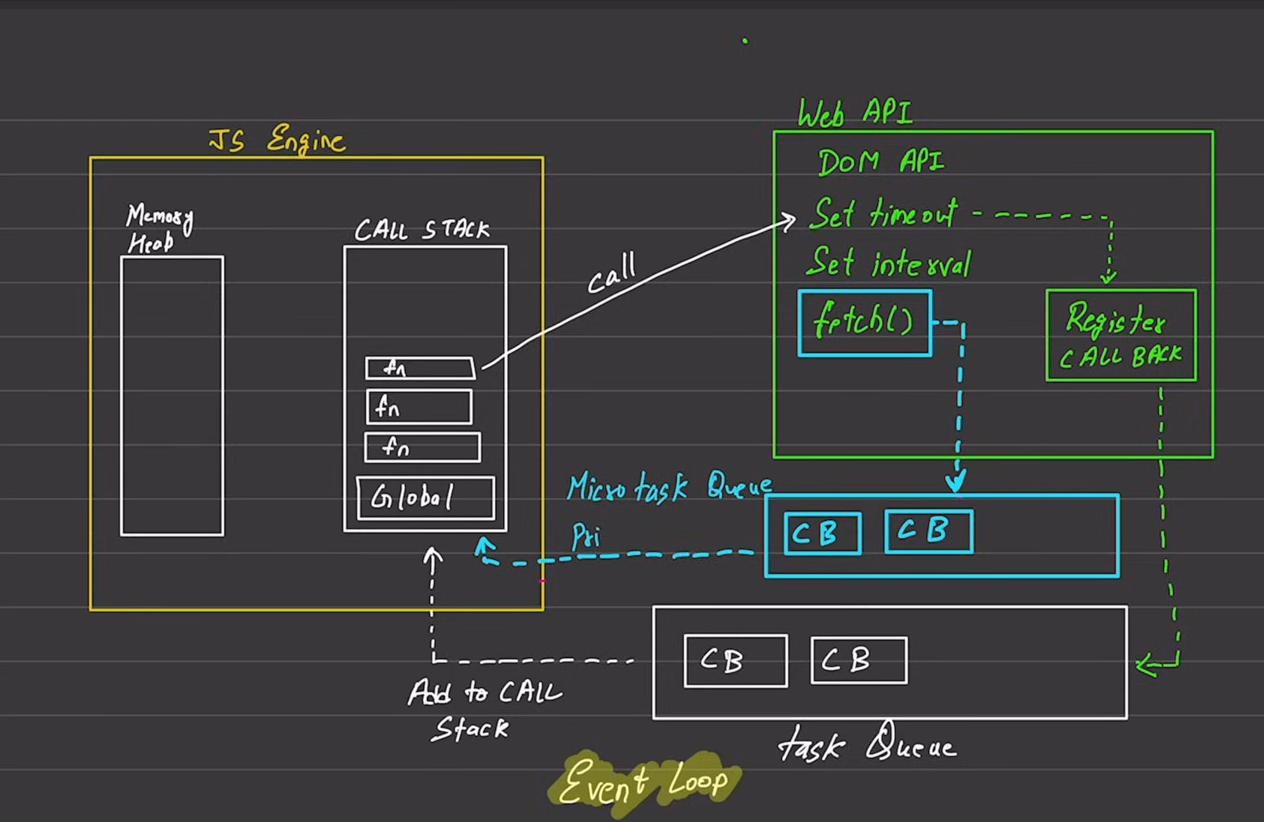 JS Engine
Memory
Heab
CALL STACK
fn
fn
fn
Global
call
Web API
DOM API
Set timeout
Set interval
fetch()
Register
CALL BACK
Micro task Queue
Pri
CB
CB
CB
CB
Add to CALL
Stack
task Queue
Event Loop